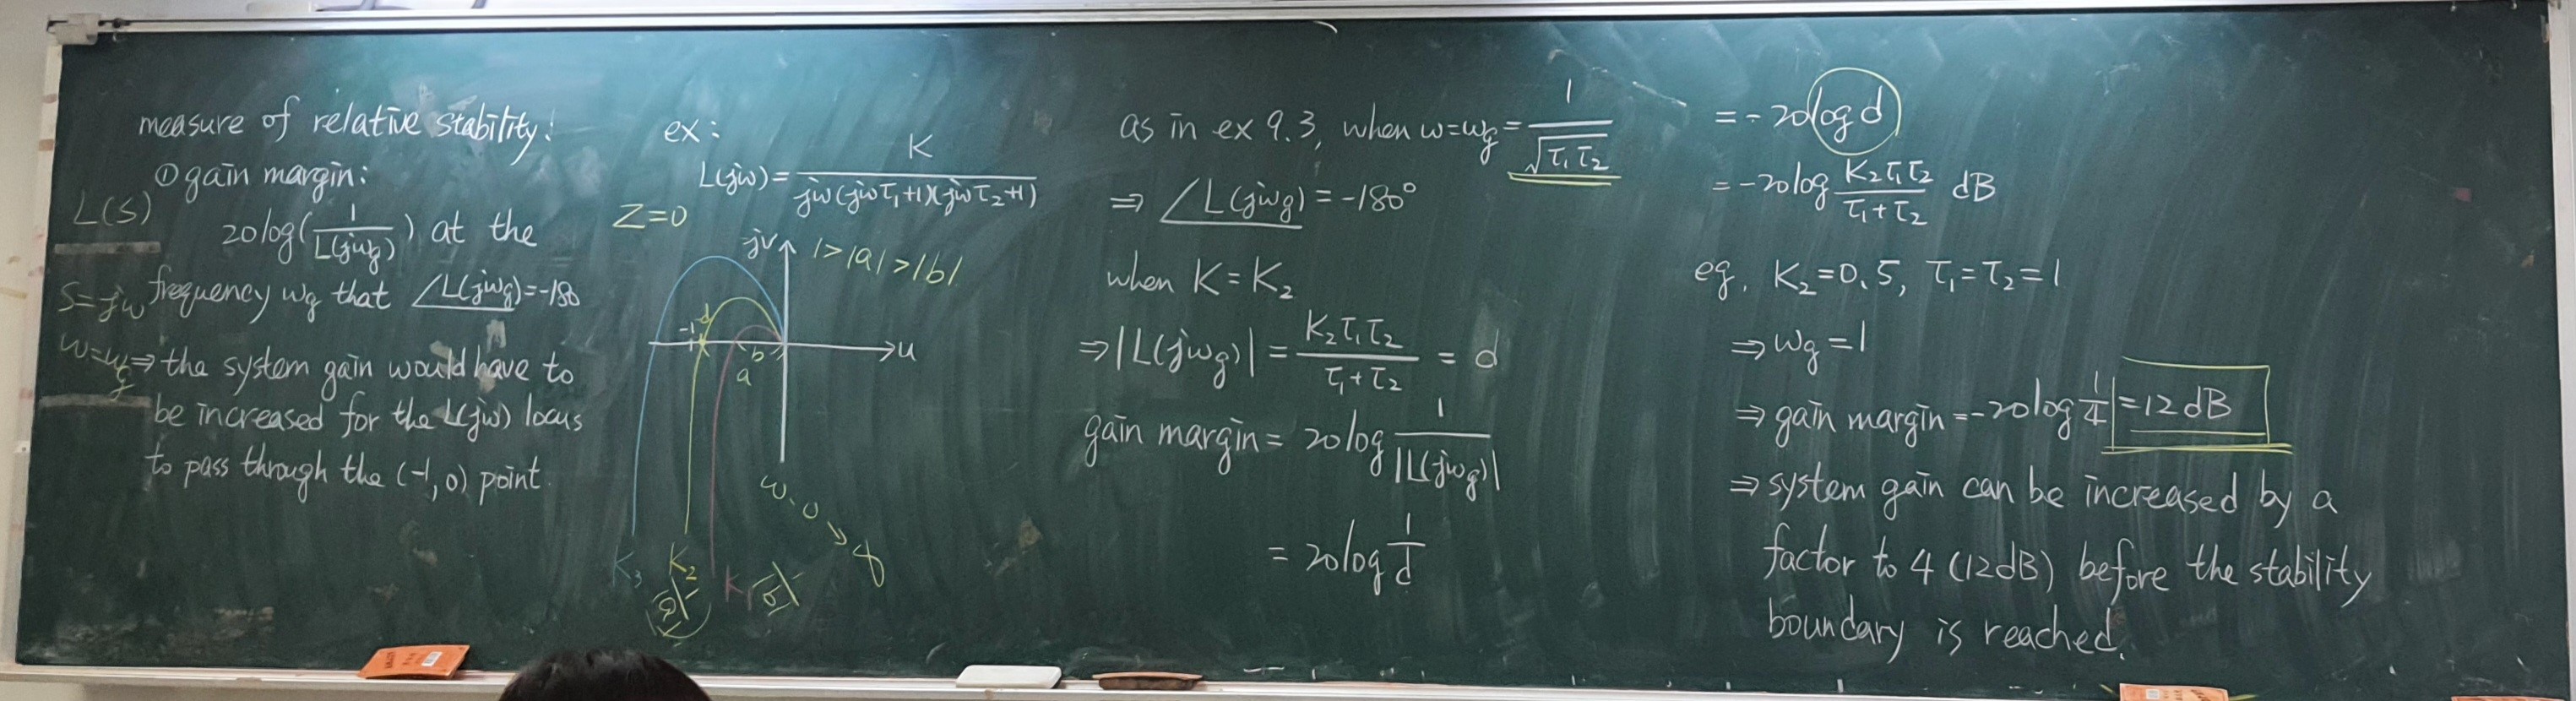 measure of relative stability:
① gain margin:
L(s)
20log(1/L(jωg)) at the
s=jω
frequency ωg that ∠L(jωg)=-180
ω=ωg
⇒ the system gain would have to
be increased for the L(jω) locus
to pass through the (-1, 0) point.
ex:
L(jω)=K/jω(jωτ₁+1)(jωτ₂+1)
Z=0
jv
1>|a|>|b|
-1
d
b
a
u
ω: 0 → ∞
K₃
K₂
|a|
K₁
|b|
as in ex 9.3, when ω=ωg=1/√τ₁τ₂
⇒ ∠L(jωg)=-180°
when K=K₂
⇒|L(jωg)|=K₂τ₁τ₂/τ₁+τ₂=d
gain margin=20log 1/|L(jωg)|
=20log 1/d
=-20log d
=-20log K₂τ₁τ₂/τ₁+τ₂ dB
eg. K₂=0.5, τ₁=τ₂=1
⇒ ωg=1
⇒ gain margin=-20log 1/4=12dB
⇒ system gain can be increased by a
factor to 4 (12dB) before the stability
boundary is reached.